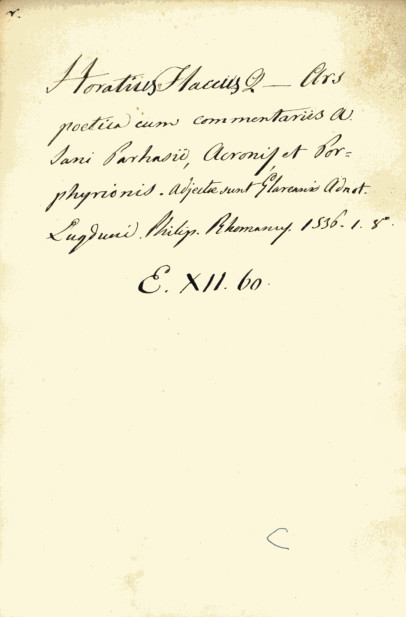 r.
Horatius Flaccus Q — Ars
poetica cum commentariis A.
Jani Parhasii, Acronis, et Por=
phyrionis. Adjectæ sunt Glareanis Adnot.
Lugduni. Philip. Rhomany. 1536. 1. 8°
E. XII. 60.
C